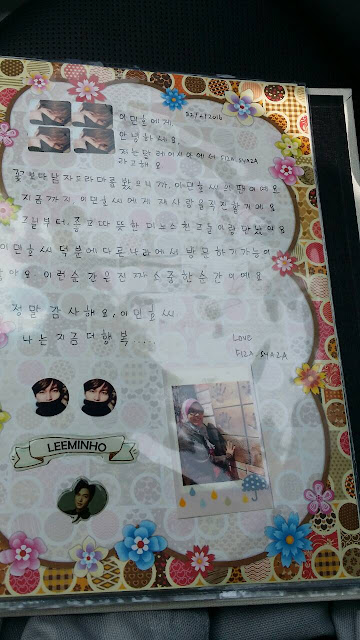 이민호에게
22/2/2016
안녕하세요.
저는 말레이시아에서 FIZA SYAZA
라고 해요
꽃보다 남자드라마를 봤으니까, 이민호씨의 팬이에요
지금까지 이민호씨에게 제 사랑을
이민호씨 덕분에 다른나라에서 방문하기가능
아요. 이런 순간은 진짜 소중한순간이에요
정말 감사해요, 이민호씨
나는 지금 더 행복...
LOVE
FIZA SYAZA
LEEMINHO